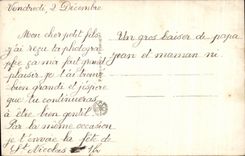 Vendredi, 2 Décembre
Mon cher petit fils
j'ai reçu ta photogra
ppe ça m'a fait grand
plaisir je t'ai trouvé
bien grand et j'espère
que tu continueras
à être bien gentil
Par la même occasion
je t'envoie la fête de
St Nicolas
Un gros baiser de papa
jean et maman